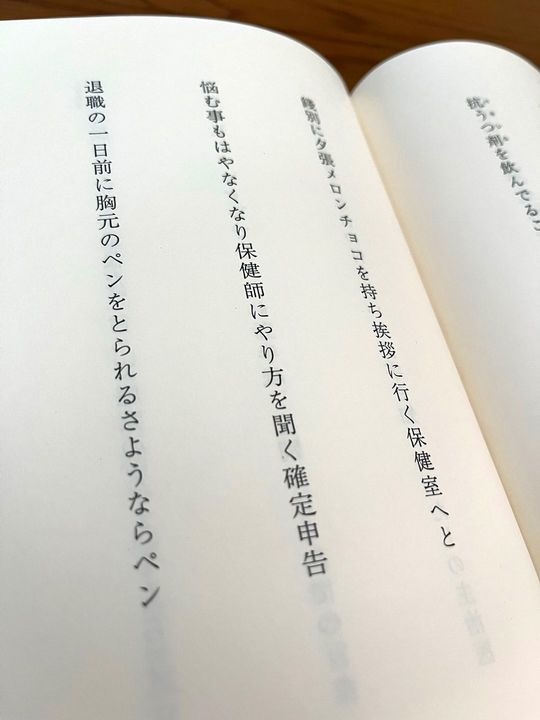 抗うつ剤を飲んでるこ
餞別に夕張メロンチョコを持ち挨拶に行く保健室へと
悩む事もはやなくなり保健師にやり方を聞く確定申告
退職の一日前に胸元のペンをとられるさようならペン